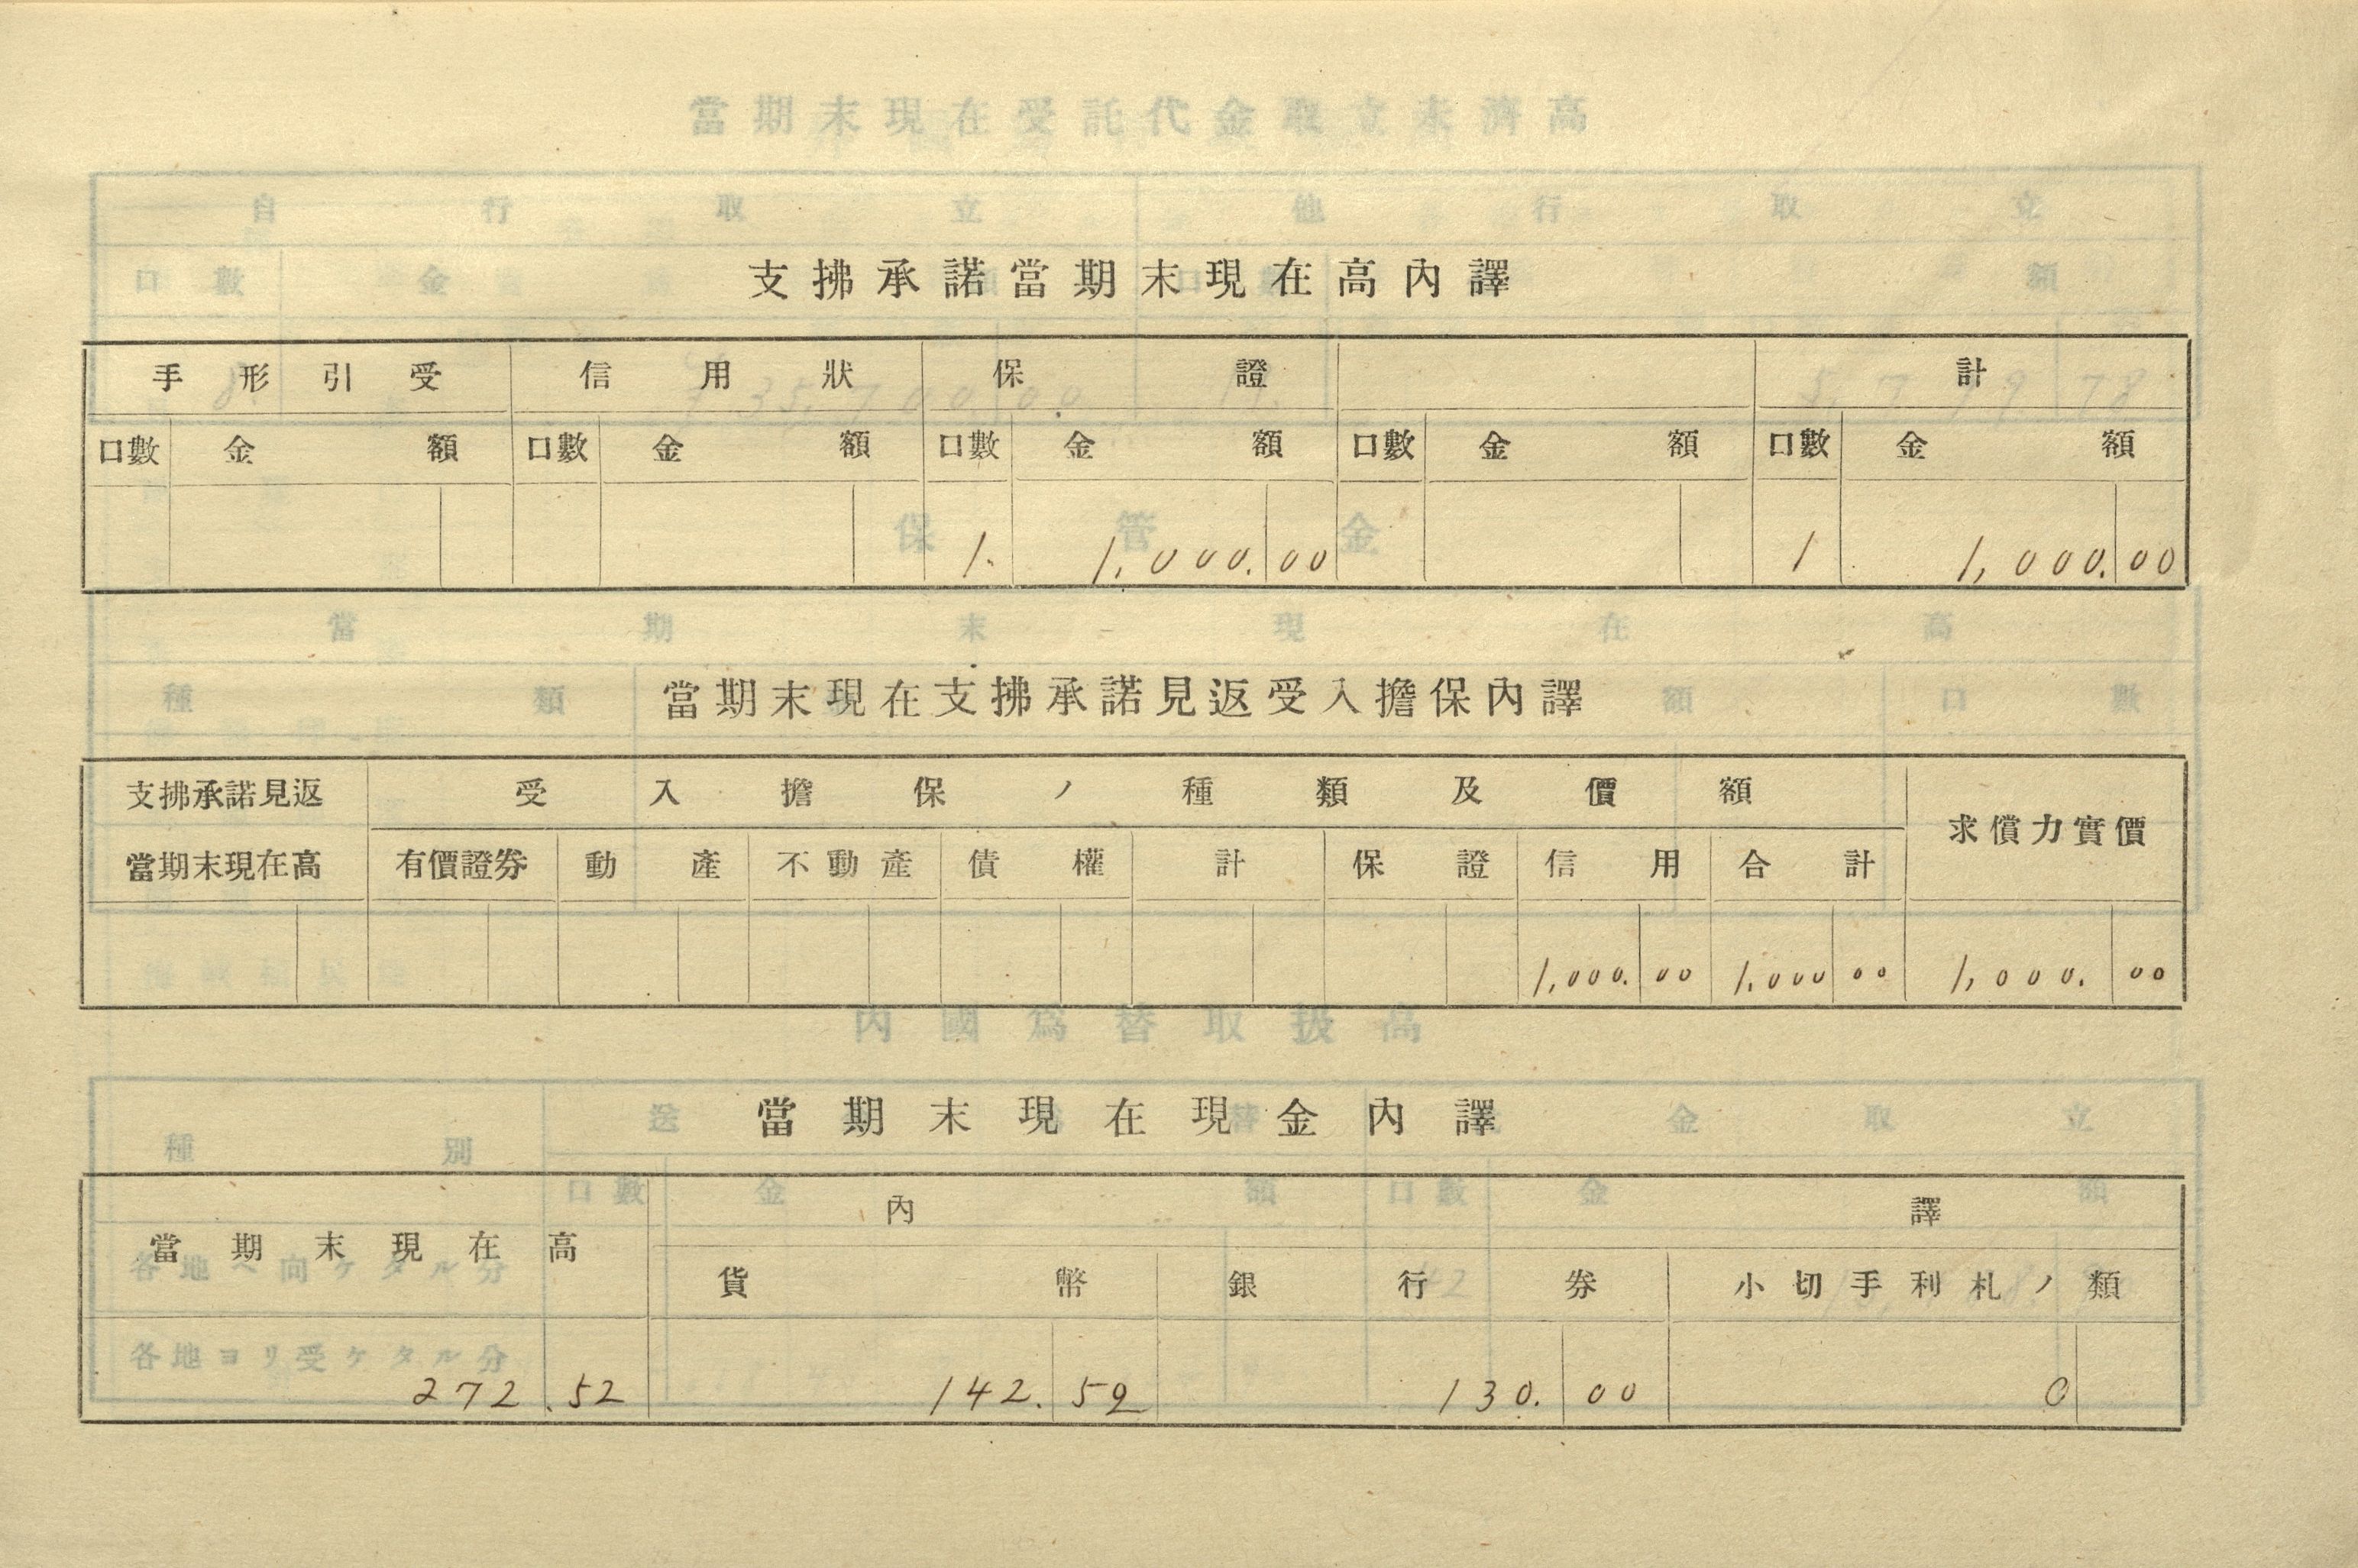 支拂承諾當期末現在高內譯
手形引受 信用狀 保證 計
口數 金額 口數 金額 口數 金額 口數 金額 口數 金額
1. 1,000.00 1 1,000.00
當期末現在支拂承諾見返受入擔保內譯
支拂承諾見返 受入擔保ノ種類及價額 求償力實價
當期末現在高 有價證券 動產 不動產 債權 計 保證 信用 合計
1,000.00 1.000 00 1,000.00
當期末現在現金內譯
當期末現在高 內譯
貨幣 銀行券 小切手利札ノ類
272.52 142.52 130.00 0